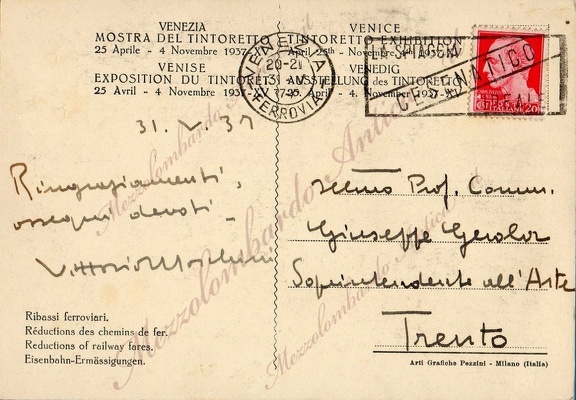 VENEZIA
MOSTRA DEL TINTORETTO
25 Aprile - 4 Novembre 1937-XV
VENISE
EXPOSITION DU TINTORET
25 Avril - 4 Novembre 1937-XV
VENICE
TINTORETTO EXHIBITION
April 25th - November 4th 1937-XV
VENEDIG
AUSSTELLUNG des TINTORETTO
25. April - 4. November 1937-XV
VENEZIA
20-21
31 V
FERROVIA
LA SPIAGGIA
ADRIATICO
20
31.V.37
Ringraziamenti,
ossequi devoti -
Vittorio
Illmo Prof. Comm.
Giuseppe Gerola
Soprintendente all'Arte
Trento
Ribassi ferroviari.
Réductions des chemins de fer.
Reductions of railway fares.
Eisenbahn-Ermässigungen.
Arti Grafiche Pezzini - Milano (Italia)
Mezzolombardo Antica
Mezzolombardo Antica